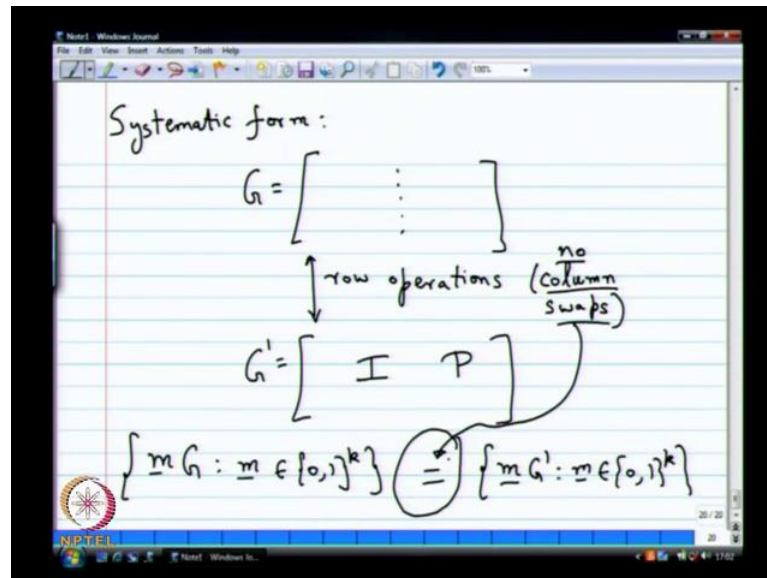 Note1 - Windows Journal
File Edit View Insert Actions Tools Help
100%
Systematic form:
G = [ ⋮ ]
↕ row operations (no column swaps)
G' = [ I P ]
{ m G : m ∈ {0,1}^k } = { m G' : m ∈ {0,1}^k }
20 / 20
20
NPTEL
Note1 - Windows Jo...
17:02